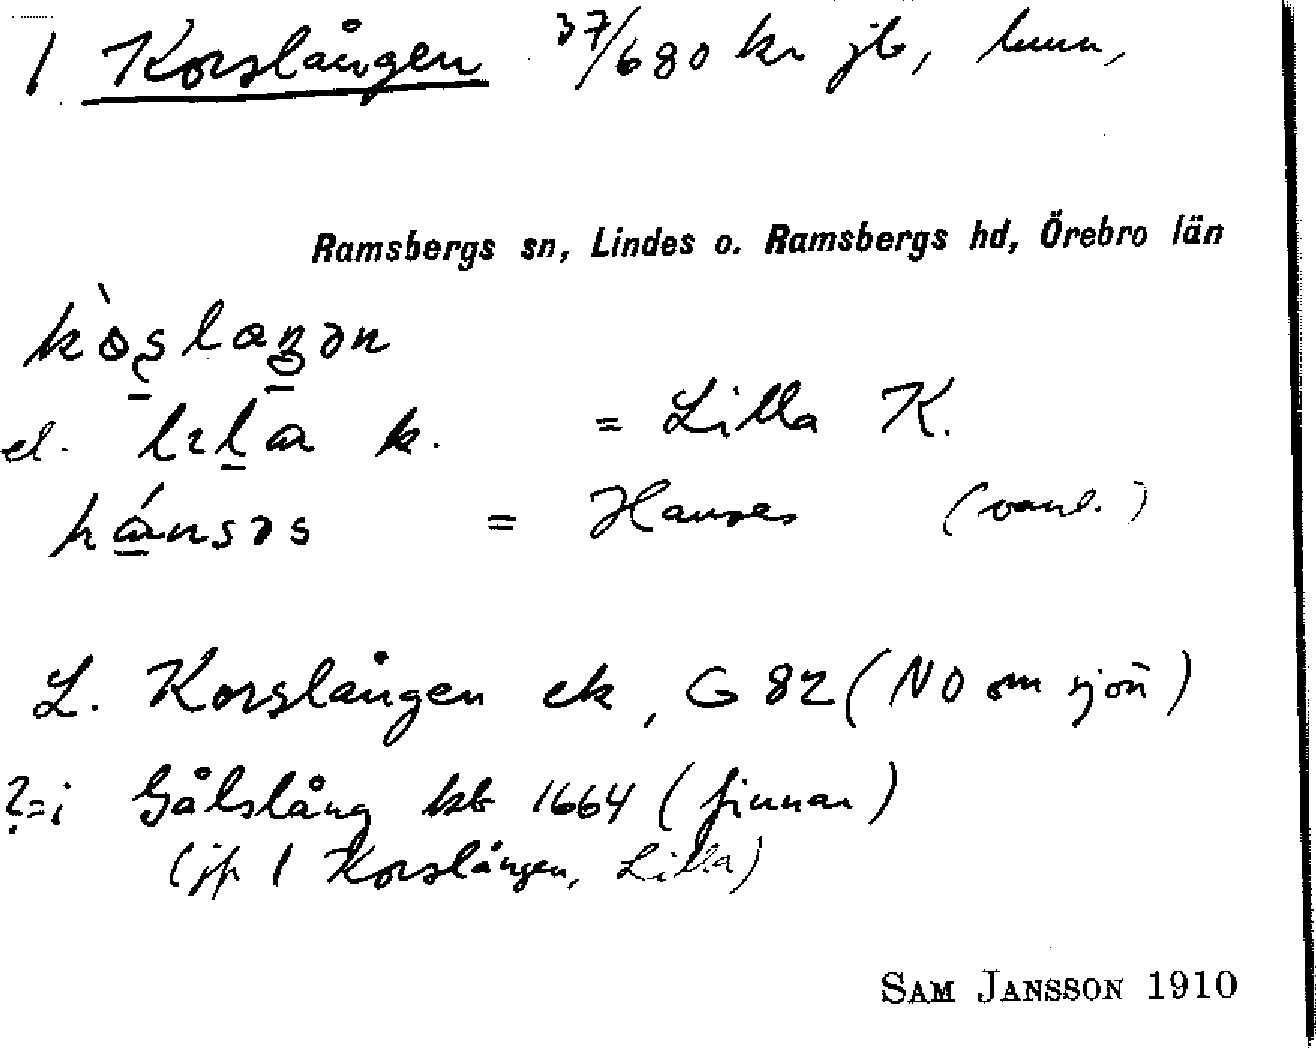 1 Korslången 37/680 kr jb, hmn,
Ramsbergs sn, Lindes o. Ramsbergs hd, Örebro län
kòşlaŋən
el. lıla k. = Lilla K.
hánsəs = Hanses (vanl.)
L. Korslången ek, G 82 (NO om sjön)
?=i Gålslång kb 1664 (finnar)
(jfr 1 Korslången, Lilla)
SAM JANSSON 1910